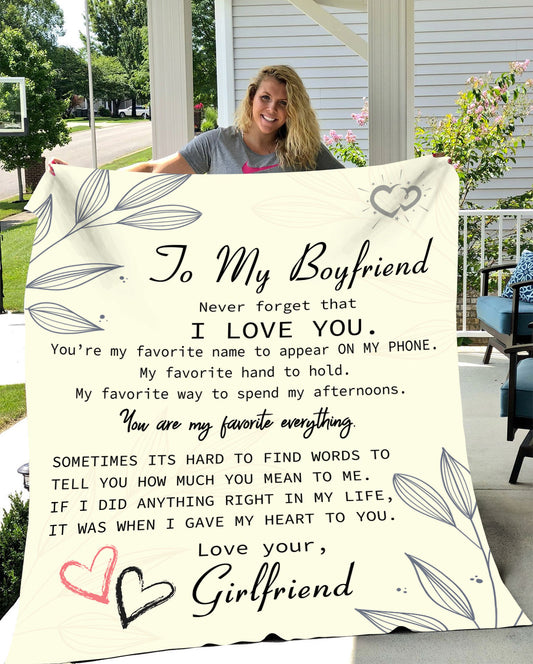 To My Boyfriend
Never forget that
I LOVE YOU.
You're my favorite name to appear ON MY PHONE.
My favorite hand to hold.
My favorite way to spend my afternoons.
You are my favorite everything.
SOMETIMES ITS HARD TO FIND WORDS TO
TELL YOU HOW MUCH YOU MEAN TO ME.
IF I DID ANYTHING RIGHT IN MY LIFE,
IT WAS WHEN I GAVE MY HEART TO YOU.
Love your,
Girlfriend